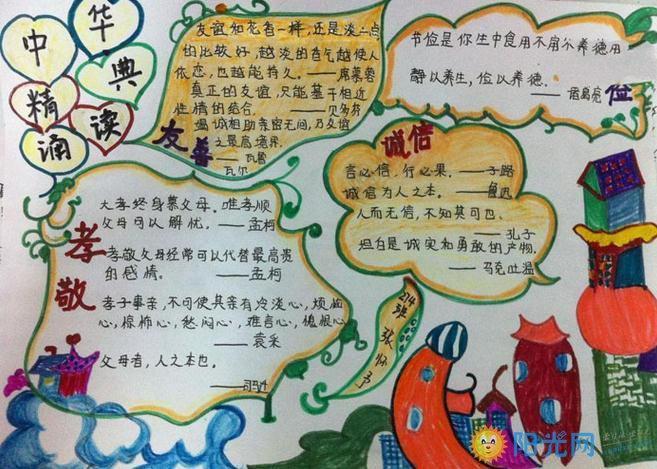 中
华
精
典
诵
读
友谊如花香一样,还是淡一点
的比较好,越淡的香气越使人
依恋,也越能持久。——席慕蓉
真正的友谊,只能基于相近
性情的结合。——贝多芬
温诚相助亲密无间,乃友谊
之最高境界。
——瓦鲁
瓦尔
友善
节俭是你生中食用不
静以养生,俭以养德。
——诸葛亮
俭
诚信
言必信,行必果。——子路
诚信为人之本。——鲁迅
人而无信,不知其可也。
——孔子
坦白是诚实和勇敢的产物。
——马克吐温
孝敬
大孝终身慕父母。唯孝顺
父母可以解忧。——孟柯
孝敬父母经常可以代替最高贵
的感情。——孟柯
孝子事亲,不可使其亲有冷淡心,烦恼
心,惊怖心,愁闷心,难言心,愧恨心
——袁采
父母者,人之本也。
——司马迁
214
班
张
怀
予
阳光网